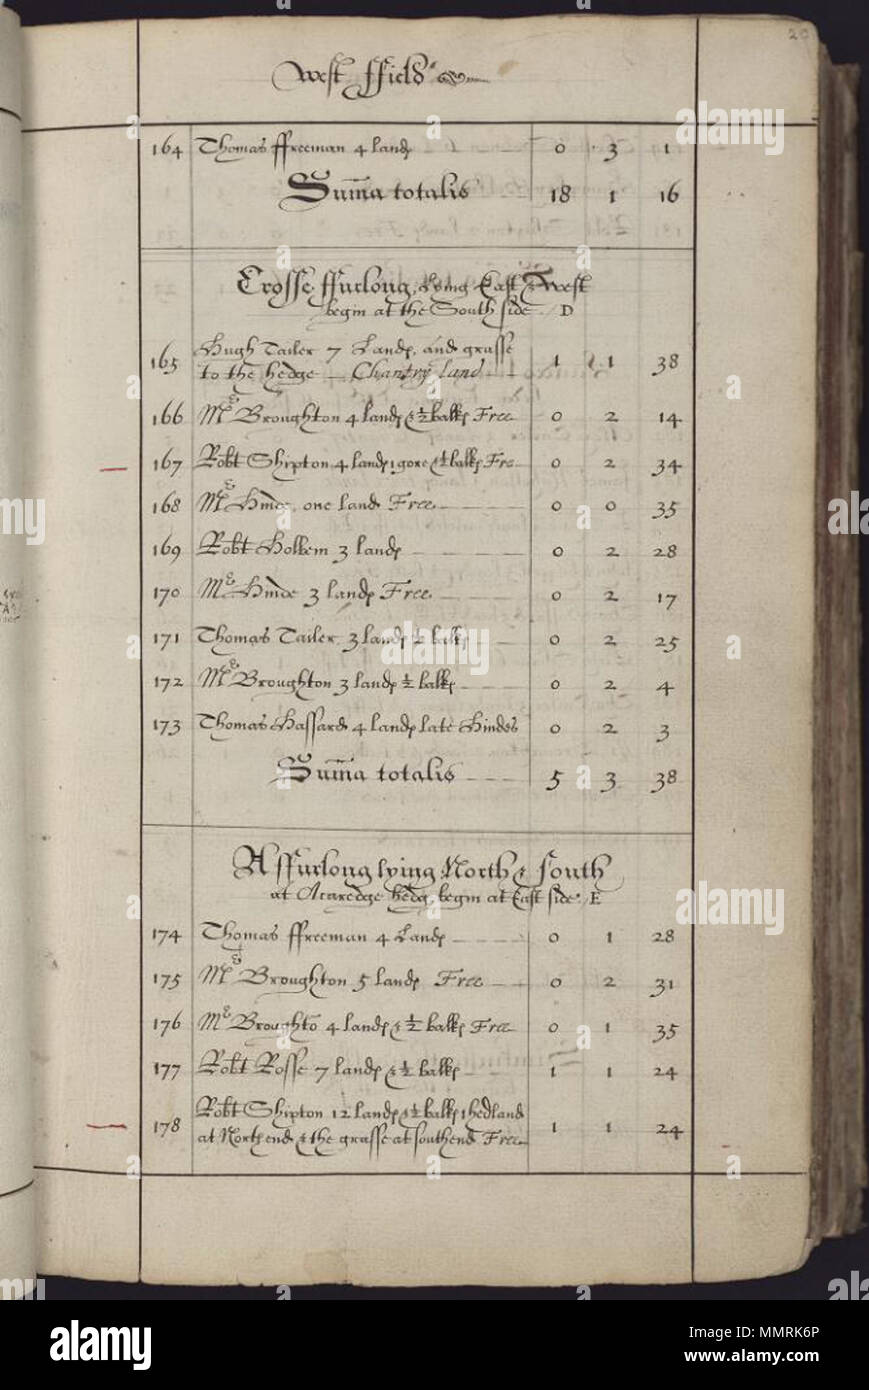 20
West ffield
164 Thomas ffreeman 4 landꝭ 0 3 1
Suma totalis 18 1 16
Crosse ffurlong, lying East & West
begin at the South side. D
165 Hugh Tailer 7 Landꝭ, and grasse
to the hedge Chantry land 1 1 38
166 Mr Broughton 4 landꝭ & ½ balkꝭ Free 0 2 14
167 Robt Shipton 4 landꝭ 1 gore & ½ balkꝭ Fre 0 2 34
168 Mr Hinde, one land Free 0 0 35
169 Robt Holkem 3 landꝭ 0 2 28
170 Mr Hinde 3 landꝭ Free 0 2 17
171 Thomas Tailer, 3 landꝭ ½ balkꝭ 0 2 25
172 Mr Broughton 3 landꝭ ½ balkꝭ 0 2 4
173 Thomas Hassard 4 landꝭ late Hindes 0 2 3
Suma totalis 5 3 38
A ffurlong lying North & South
at hedg, begin at East side. E
174 Thomas ffreeman 4 Landꝭ 0 1 28
175 Mr Broughton 5 landꝭ Free 0 2 31
176 Mr Broughto 4 landꝭ & ½ balkꝭ Free 0 1 35
177 Robt Rosse 7 landꝭ & ½ balkꝭ 1 1 24
178 Robt Shipton 12 landꝭ & ½ balkꝭ 1 hedland
at North end & the grasse at southend Free 1 1 24
alamy
Image ID: MMRK6P
www.alamy.com